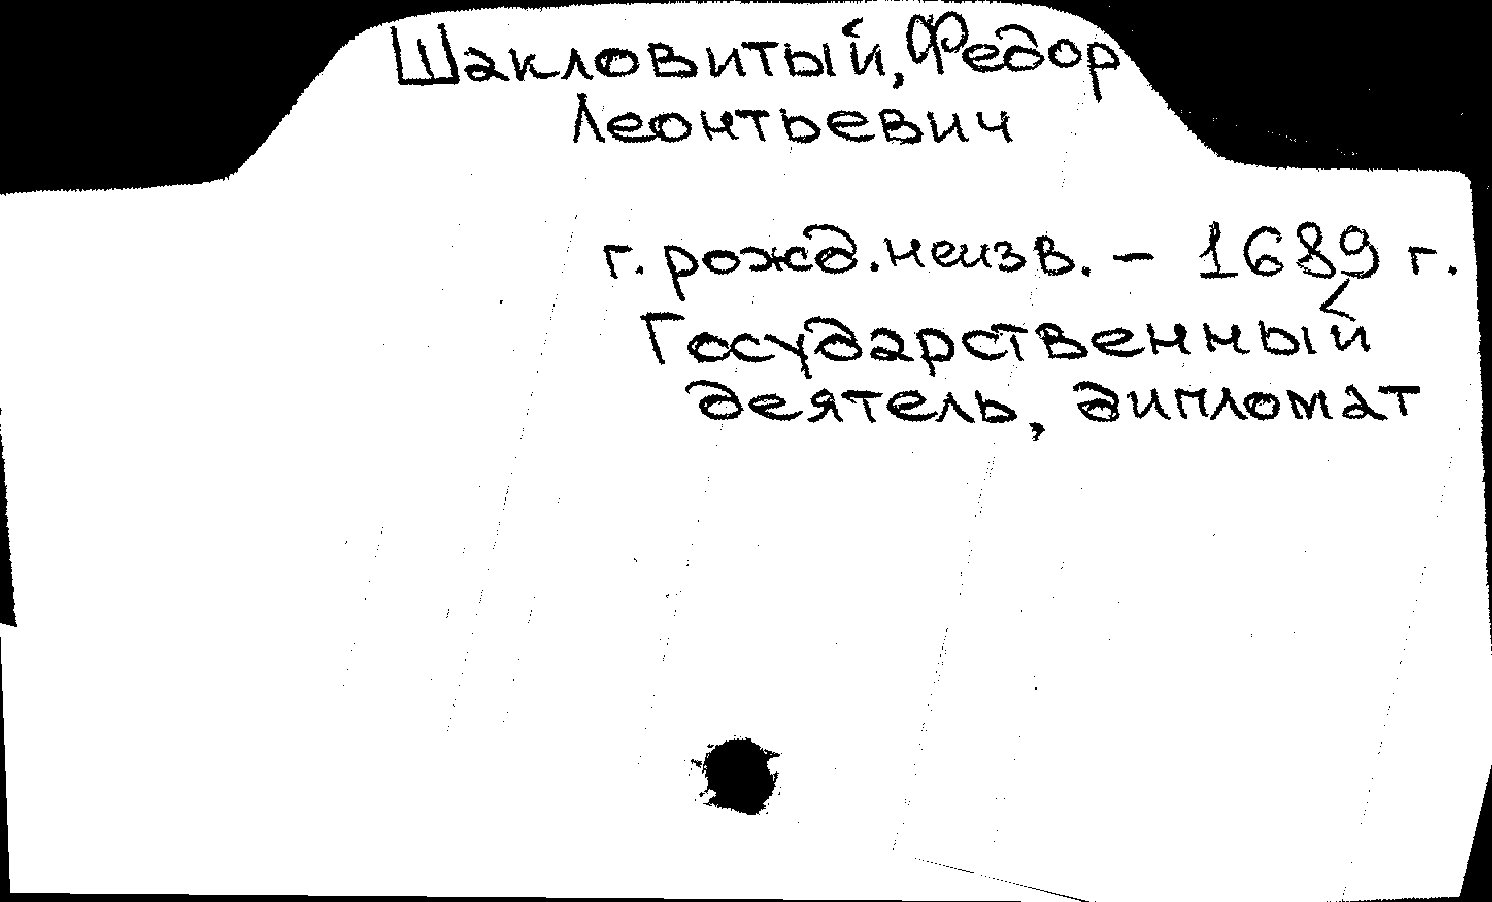 Шакловитый, Федор
Леонтьевич
г. рожд. неизв. – 1689 г.
Государственный
деятель, дипломат